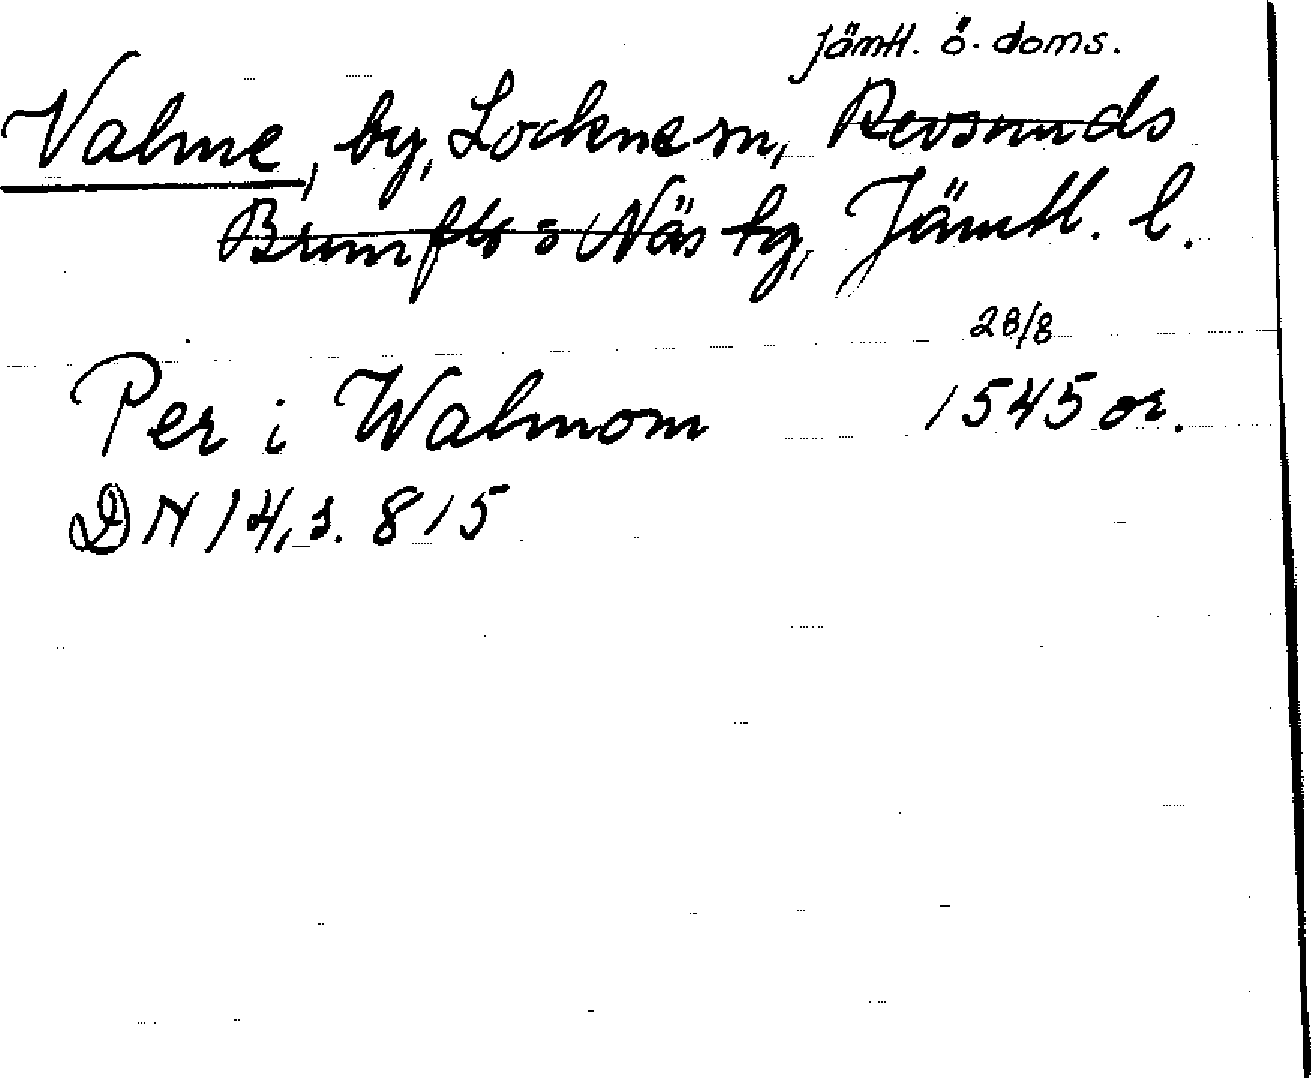 Jämtl. ö. doms.
Valme, by, Lockne sn, Revsunds
Brunflo o Näs tg, Jämtl. l.
28/8
Per i Walmom 1545 or.
DN 14, s. 815